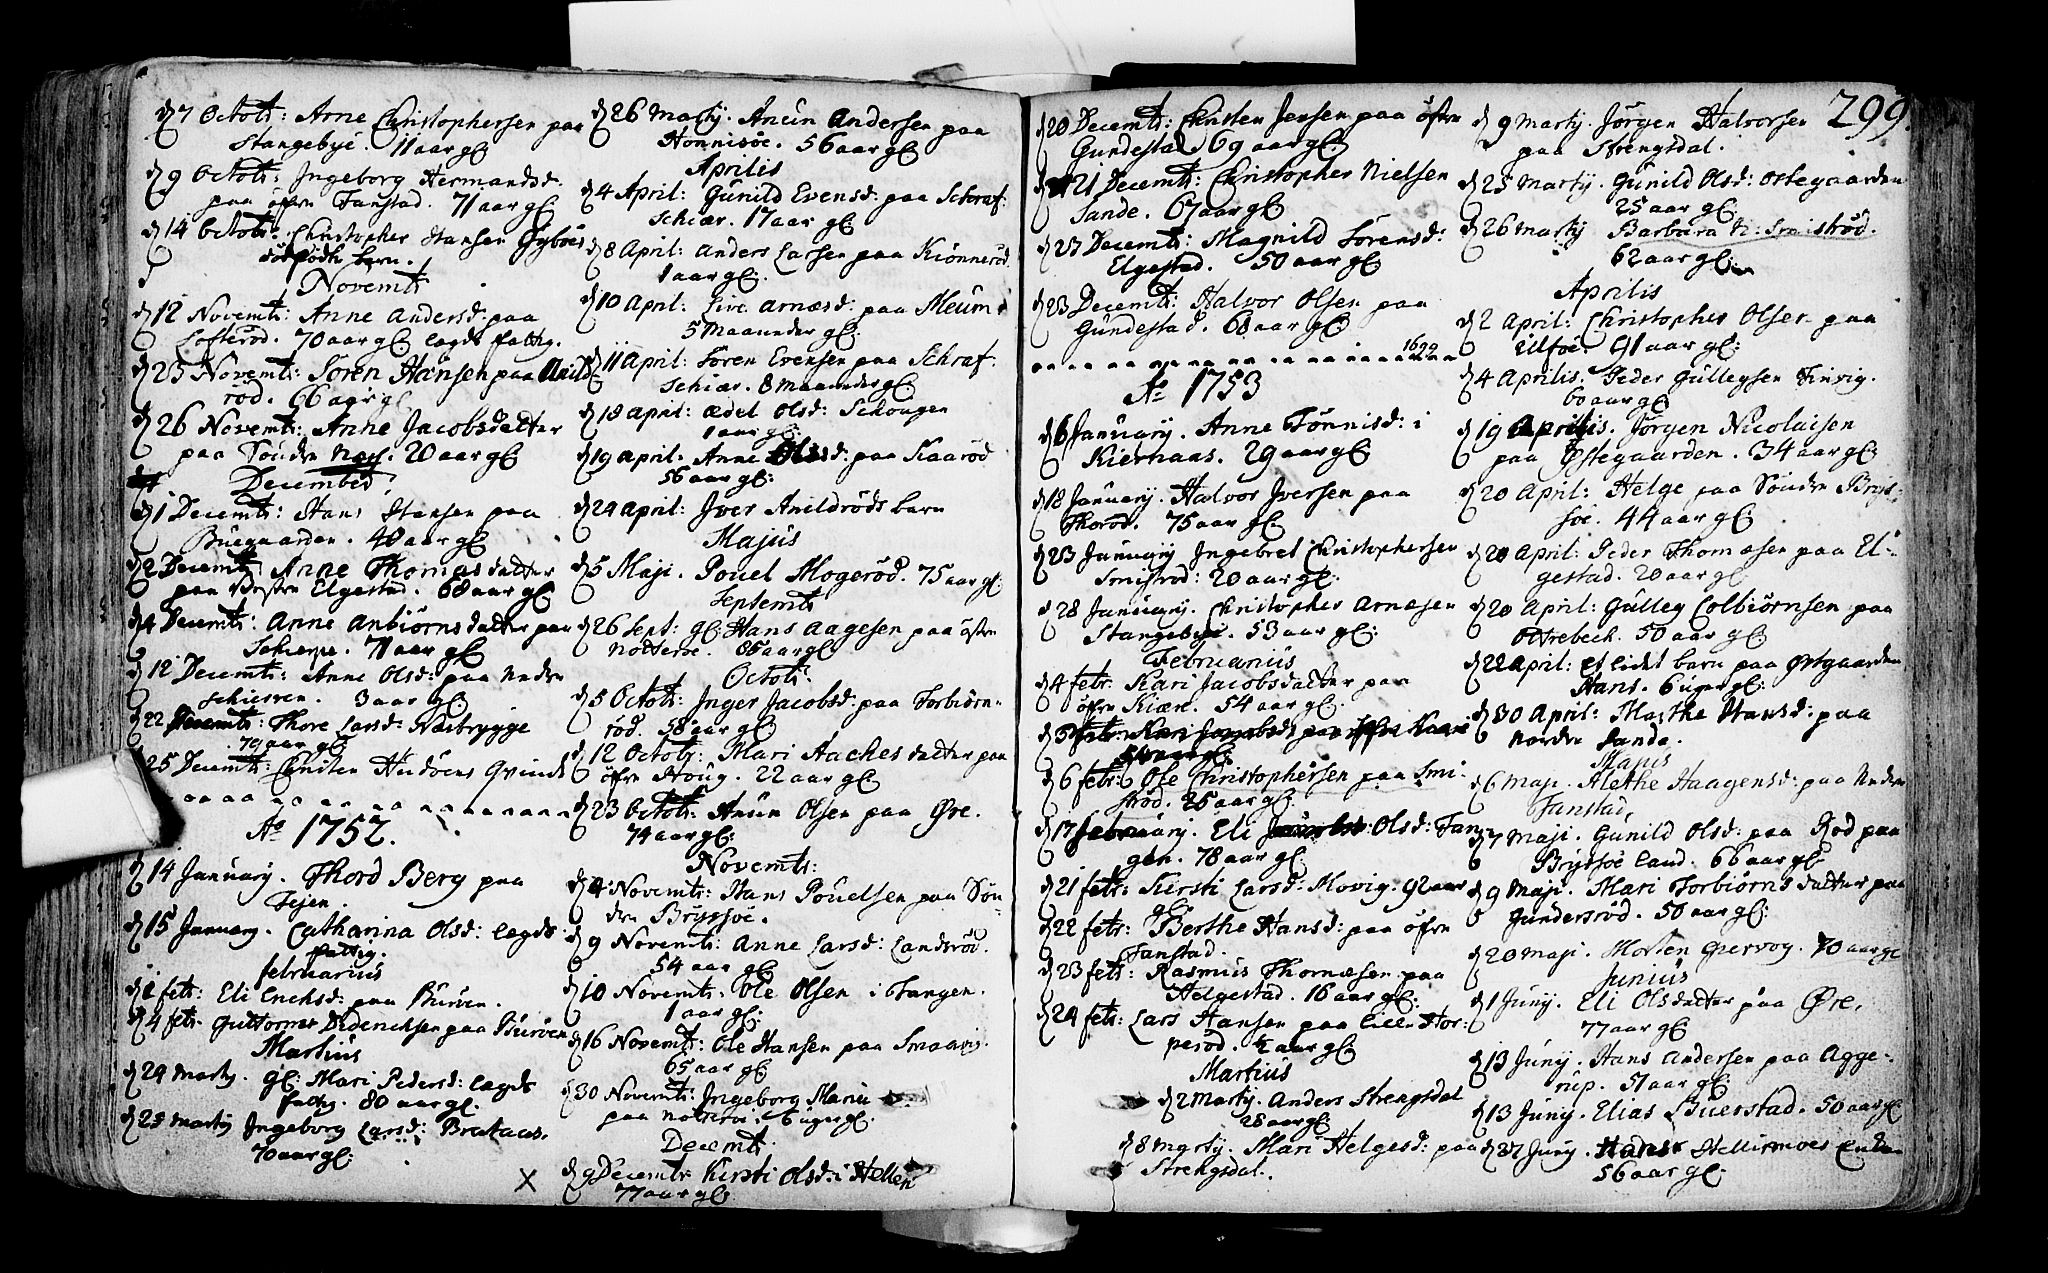 d 7 Octobr: Arne Christophersen paa
Stangebye. 11 aar gl
d 9 Octobr: Ingeborg Hermandsd:
paa öfre Fanstad. 71 aar gl
d 14 Octobr: Christopher Hansen
dödfödt barn.
Novembr
d 12 Novembr: Anne Andersd: paa
Lofteröd. 70 aar gl lagds fattig.
d 23 Novembr: Sören Hansen paa Arild
röd. 66 aar gl
d 26 Novembr: Anne Jacobsdatter
paa Söndre Nees. 20 aar gl
December
d 1 Decembr: Hans Hansen paa
Buegaarden. 40 aar gl
d 2 Decembr: Anne Thomasdatter
paa Vestre Elgestad. 68 aar gl
d 4 Decembr: Anne Anbiörnsdatter paa
Schierpe. 71 aar gl
d 12 Decembr: Anne Olsd: paa Nedre
Schierven. 3 aar gl
d 22 Decembr: Thore Larsd: Næsbrygge
79 aar gl
25 Decembr: Christen Hudöens Qvinde
Ao 1752.
d 14 January. Thord Berg paa
Tejen.
d 15 January. Catharina Olsd: lagds
fattig.
februarius
d 2 febr: Eli Erichsd: paa Buröen.
d 4 febr. Guttormer Diderichsen paa Buröen
Martius
d 29 marty. gl: Mari Pedersd: lagds
fattig. 80 aar gl.
d 25 martij Ingeborg Larsd: Brataas.
70 aar gl:
d 26 Martij. Anun Andersen paa
Honnisöe. 56 aar gl:
Aprilis
d 4 April: Gunild Evensd: paa Schraf-
schiær. 17 aar gl
d 8 April: Anders Larsen paa Kiönneröd
1 aar gl:
d 10 April: Live Arnesd: paa Meum
5 Maaneder gl:
d 11 April: Sören Evensen paa Schraf-
schiær. 8 maaneder gl
d 18 April: Ædel Olsd: Schougen
1 aar gl:
d 19 april: Anne Olsd: paa Kaaröd
56 aar gl:
d 24 april: Iver Arildröds barn
Majus
d 5 Maji. Pouel Mogeröd. 75 aar gl:
Septembr
d 26 Sept: gl: Hans Aagesen paa öfre
Nötteröe. 85 aar gl
Octobr:
d 5 Octobr: Inger Jacobsd: paa Torbiörn-
röd. 58 aar gl
d 12 Octobr: Mari Aachesdatter paa
öfre Houg. 22 aar gl:
d 23 Octobr: Anun Olsen paa Øre.
74 aar gl:
Novembr:
d 4 Novembr: Hans Pouelsen paa Sön-
dre Brydsöe.
d 9 Novembr: Anne Larsd: Landsröd.
54 aar gl
d 10 Novembr: Ole Olsen i Tangen.
1 aar gl:
d 16 Novembr: Ole Hansen paa Smaavig.
65 aar gl
d 30 Novembr: Ingeborg Maria
paa 6 uger gl.
Decembr
d 9 Decembr Kirsti Olsd: i Hellen
77 aar gl
X
299.
d 20 Decembr: Christen Jensen paa öfre
Gundestad 69 aar gl:
d 21 Decembr: Christopher Nielsen
Sande. 67 aar gl:
d 23 Decembr: Magnild Sörensd:
Elgestad. 50 aar gl:
d 23 Decembr: Halvor Olsen paa
Gundestad. 68 aar gl:
1699
Ao 1753
d 6 January. Anne Tönnisd: i
Kiernaas. 29 aar gl
d 18 January. Halvor Iversen paa
Thoröd. 75 aar gl
d 23 January Ingebret Christophersen
Smiströd: 20 aar gl:
d 28 January. Christopher Arnesen
Stangebye. 53 aar gl:
Februarius
d 4 febr: Kari Jacobsdatter paa
öfre Kiær. 54 aar gl:
d 6 febr: Ole Christophersen paa Smi-
ströd. 25 aar gl:
d 17 february. Eli Olsd: Tan-
gen. 78 aar gl:
d 21 febr: Kirsti Larsd: Movig. 92 aar
gl:
d 22 febr: Berthe Hansd: paa öfre
Fanstad.
d 23 febr: Rasmus Thomesen paa
Helgestad. 16 aar gl:
d 24 febr: Lars Hansen paa lille Hor-
peröd. ½ aar gl:
Martius
d 2 Martij. Anders Strengsdal
28 aar gl
d 8 Marty. Mari Helgesd: paa
Strengsdal.
d 9 Martij Jörgen Halvorsen
paa Strengsdal.
d 25 Martij. Gunild Olsd: Østegaarden
25 aar gl:
d 26 Martij Barbara N: Smiströd.
62 aar gl:
Aprilis
d 2 April: Christopher Olsen paa
Ulföe. 91 aar gl:
d 4 Aprilis. Peder Gulleysen Finvig.
60 aar gl
d 19 Aprilis. Jörgen Nicolaisen
paa Østegaarden. 34 aar gl
d 20 April: Helge paa Söndre Bryd-
söe. 44 aar gl
d 20 April: Peder Thomesen paa El-
gestad. 20 aar gl
d 20 April: Gulley Colbiörnsen paa
Ottrebech. 50 aar gl:
d 22 April: et lidet barn paa Østgaarden
Hans. 6 uger gl:
d 30 April: Marthe Hansd: paa
nordre Sande.
Majus
d 6 Maji. Alethe Haagensd: paa Nedre
Fanstad,
d 7 Maji. Gunild Olsd: paa Röd paa
Brydsöe Land. 66 aar gl
d 9 Maji. Mari Torbiörnsdatter paa
Gunderröd. 50 aar gl:
d 20 Maji. Morten Giervog. 70 aar gl
Junius
d 1 Juny. Eli Olsdatter paa Øre.
77 aar gl
d 13 Juny. Hans Andersen paa Agge-
rup. 51 aar gl:
d 13 Juny. Elias Buerstad. 50 aar gl
d 27 Juny. Hellesmoes Enke
56 aar gl: